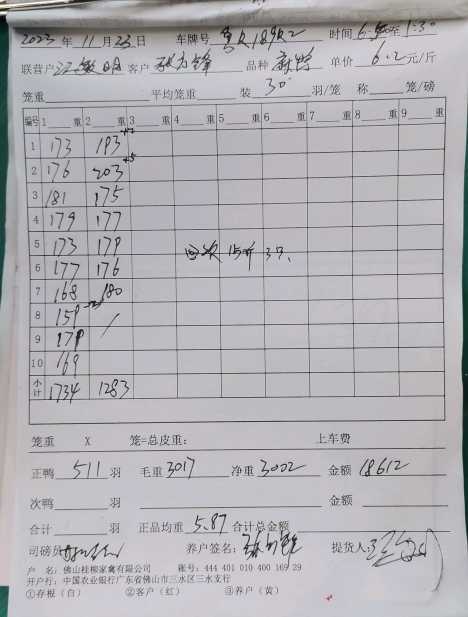 2023 年 11 月 23 日 车牌号 时间 至 1:30
联营户 客户 品种 单价 6.2 元/斤
笼重 平均笼重 装 30 羽/笼 称 笼/磅
编号 1 重 2 重 3 重 4 重 5 重 6 重 7 重 8 重 9 重
1 173 193
2 176 203 +5
3 181 175
4 179 177
5 173 179 15斤 3只
6 177 176
7 168 180
8 159
9 179 /
10 169
小计 1734 1283
笼重 X 笼=总皮重: 上车费
正鸭 511 羽 毛重 3017 净重 3002 金额 18612
次鸭 羽 金额
合计 羽 正品均重 5.87 合计总金额
司磅员 养户签名: 提货人:
户 名: 佛山桂柳家禽有限公司 账号: 444 401 010 400 169 29
开户行: 中国农业银行广东省佛山市三水区三水支行
①存根（白） ②客户（红） ③养户（黄）